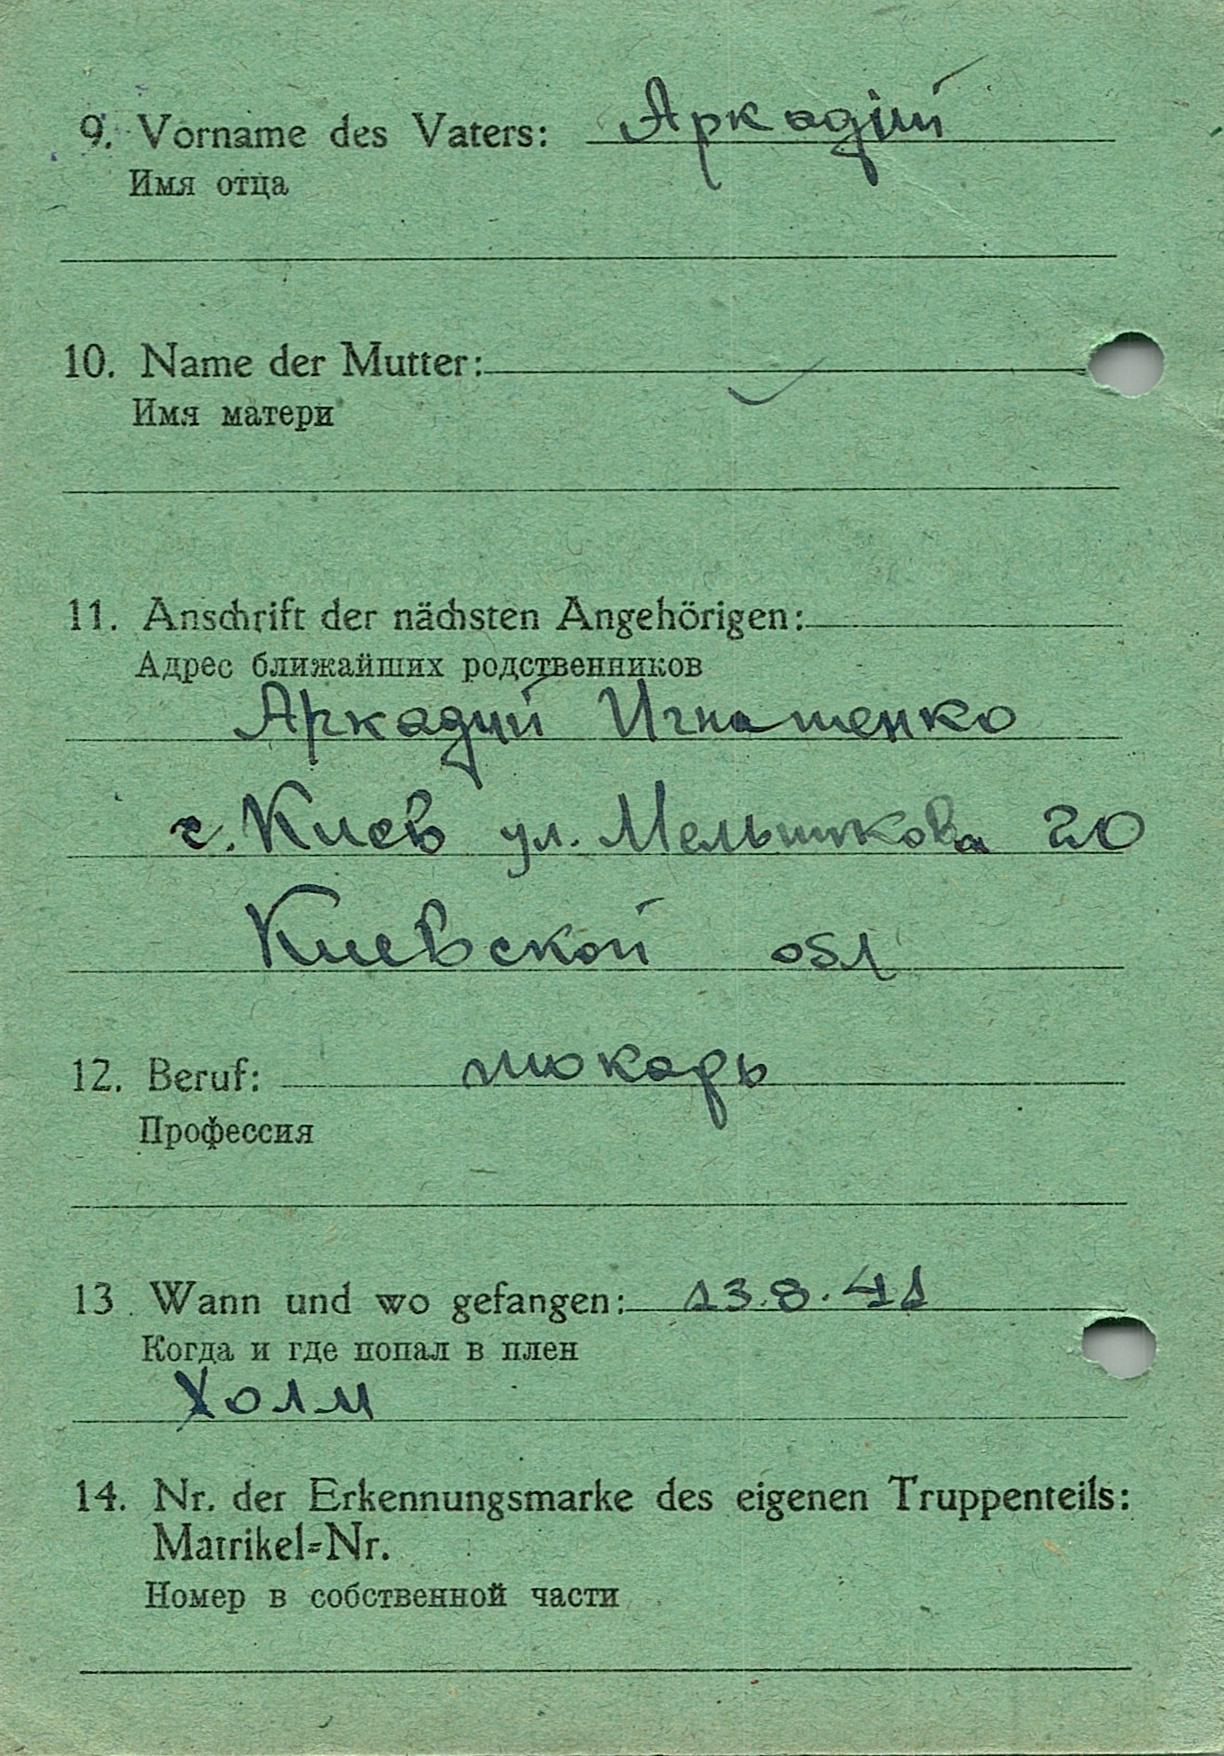 9. Vorname des Vaters: Аркадій
Имя отца
10. Name der Mutter:
Имя матери
11. Anschrift der nächsten Angehörigen:
Адрес ближайших родственников
Аркадий Игнатенко
г. Киев ул. Мельникова 20
Киевской обл
12. Beruf: токарь
Профессия
13. Wann und wo gefangen: 13.8.41
Когда и где попал в плен
Холм
14. Nr. der Erkennungsmarke des eigenen Truppenteils:
Matrikel-Nr.
Номер в собственной части